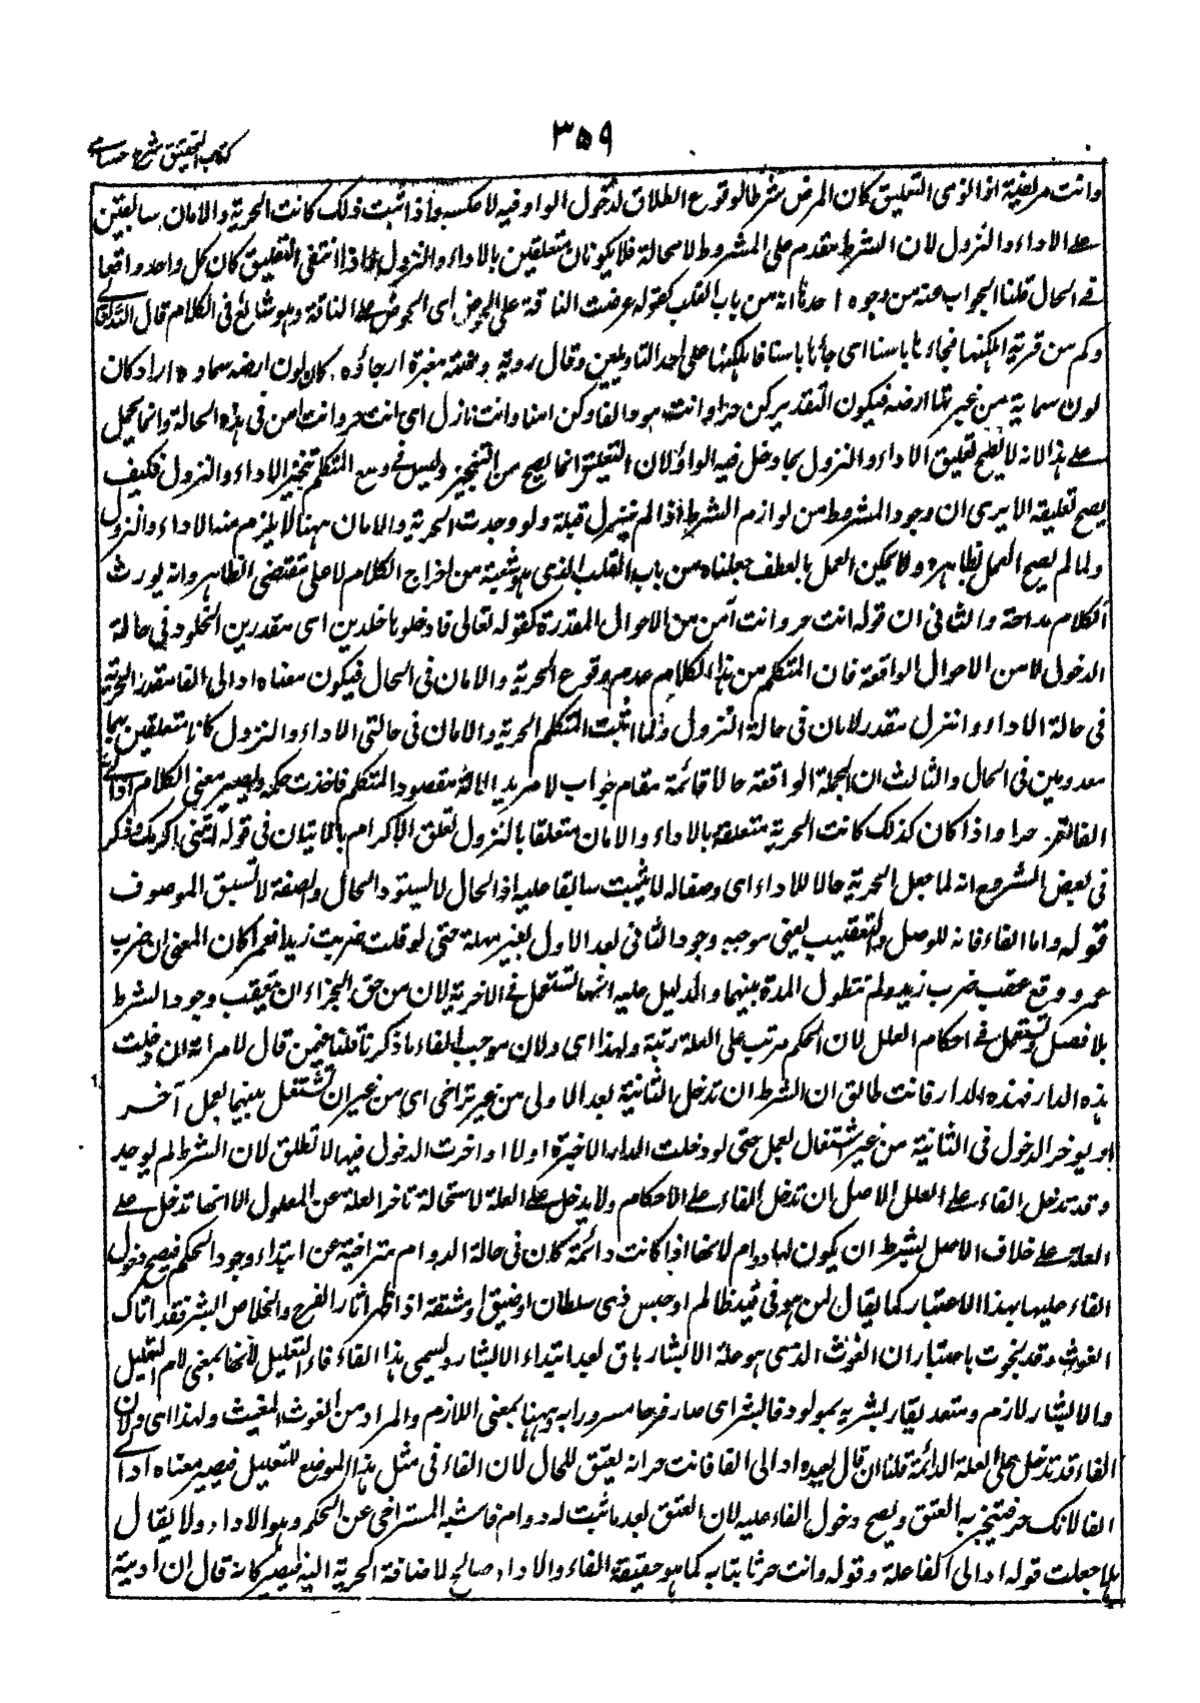 ٣٥٩
كتاب التحقيق شرح حسامي
وانت مريضة اذا نوى التعليق كان المرض شرطا لوقوع الطلاق لدخول الواو فيه لا عكسه واذا ثبت ذلك كانت الحرية والامان سابقين
على الاداء والنزول لان الشرط مقدم على المشروط لا محالة فلا يكونان متعلقين بالاداء والنزول واذا انتفى التعليق كان كل واحد واقعا
فى الحال قلنا الجواب عنه من وجوه احدها انه من باب القلب كقوله عرضت الناقة على الحوض اى الحوض على الناقة وهو شائع فى الكلام قال الله تعالى
وكم من قرية اهلكنها فجاءها باسنا اى جاءها باسنا فاهلكنها على احد التاويلين وقال روبة ومهمه مغبرة ارجاؤه كان لون ارضه سماوه اراد كان
لون سمايه من غبرتها ارضه فيكون التقدير كن حرا وانت مود الفا وكن امنا وانت نازل اى انت حر وانت امن فى هذه الحالة وانما يحمل
على هذا لانه لا يصح تعليق الاداء والنزول بما دخل فيه الواو لان التعليق انما يصح من التنجيز وليس فى وسع المتكلم تنجيز الاداء والنزول فكيف
يصح تعليقه الا يرى ان وجود المشروط من لوازم الشرط اذا لم ينزل قبله ولو وجدت الحرية والامان ههنا لا يلزم منه الاداء والنزول
ولما لم يصح العمل بظاهره ولا يمكن العمل بالعطف جعلناه من باب القلب الذى هو شعبة من اخراج الكلام لا على مقتضى الظاهر وانه يورث
الكلام ملاحة والثانى ان قوله انت حر وانت آمن من الاحوال المقدرة كقوله تعالى فادخلوها خلدين اى مقدرين الخلود فى حالة
الدخول لا من الاحوال الواقعة فان المتكلم من هذا الكلام عدم وقوع الحرية والامان فى الحال فيكون معناه اد الى الفا مقدر الحرية
فى حالة الاداء وانزل مقدر لامان فى حالة النزول ولما اثبت المتكلم الحرية والامان فى حالتى الاداء والنزول كانا متعلقين بهما
معدومين فى الحال والثالث ان الجملة الواقعة حالا قائمة مقام جواب الامر بدلالة مقصود المتكلم فاخذت حكمه ويصير معنى الكلام اد الى
الفا تصر حرا واذا كان كذلك كانت الحرية متعلقة بالاداء والامان متعلقا بالنزول تعلق الاكرام بالاتيان فى قوله ايتنى اكرمك وذكر
فى بعض الشروح انه لما جعل الحرية حالا للاداء اى وصفا له لا يثبت سابقا عليه اذ الحال لا يسبق ذا الحال والصفة لا تسبق الموصوف
قوله واما الفاء فانه للوصل والتعقيب يعنى موجبه وجود الثانى بعد الاول بغير مهلة حتى لو قلت ضربت زيدا فعمرا كان المعنى ان ضرب
عمرو وقع عقب ضرب زيد ولم تتطول المدة بينهما والدليل عليه انها تستعمل فى الاجزية لان من حق الجزاء ان يتعقب وجود الشرط
بلا فصل وتستعمل فى احكام العلل لان الحكم مرتب على العلة رتبة ولهذا اى ولان موجب الفاء ما ذكرنا قلنا فيمن قال لامراته ان دخلت
هذه الدار فهذه الدار فانت طالق ان الشرط ان تدخل الثانية بعد الاولى من غير تراخى اى من غير ان تشتغل بينهما بعمل آخر
او يوخر الدخول فى الثانية من غير اشتغال بعمل حتى لو دخلت الدار الاخيرة اولا او اخرت الدخول فيها لا تطلق لان الشرط لم يوجد
وقد تدخل الفاء على العلل الاصل ان تدخل الفاء على الاحكام ولا يدخل على العلة لاستحالة تاخر العلة عن المعلول الا انها تدخل على
العلة على خلاف الاصل بشرط ان يكون لها دوام لانها اذا كانت دائمة كان فى حالة الدوام متراخية عن ابتداء وجود الحكم فيصح دخول
الفاء عليها بهذا الاعتبار كما يقال لمن هو فى قيد ظالم او حبس ذى سلطان او ضيق او مشقة اذا ظهر اثار الفرج والخلاص ابشر فقد اتاك
الغوث وقد نجوت باعتبار ان الغوث الذى هو علة الابشار باق بعد ابتداء الابشار ويسمى هذا الفاء فاء التعليل لانها بمعنى لام التعليل
والابشار لازم ومتعد يقال بشر به بمولود فابشر اى صار فرحا مسرورا به وههنا بمعنى اللازم والمراد من الغوث المغيث ولهذا اى ولان
الفاء قد تدخل على العلة الدائمة قلنا ان قال لعبده اد الى الفا فانت حر انه يعتق للحال لان الفاء فى مثل هذا الموضع للتعليل فيصير معناه اد الى
الفا لانك حر فيتنجز به العتق ويصح دخول الفاء عليه لان العتق بعد ما ثبت له دوام فاشبه المتراخى عن الحكم وهو الاداء ولا يقال
هلا جعلت قوله اد الى الفا علة وقوله وانت حر ثابتا به كما هو حقيقة الفاء والاداء صالح لاضافة الحرية اليه فيصير كانه قال ان اديت